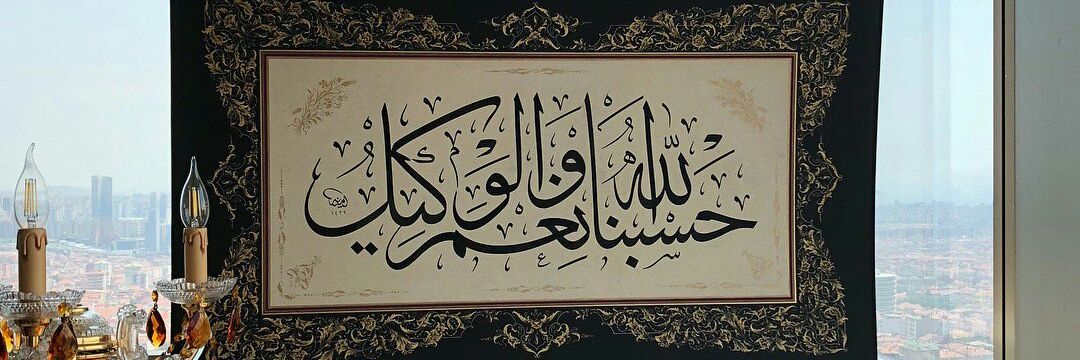 حسبنا الله ونعم الوكيل
١٤٣٩